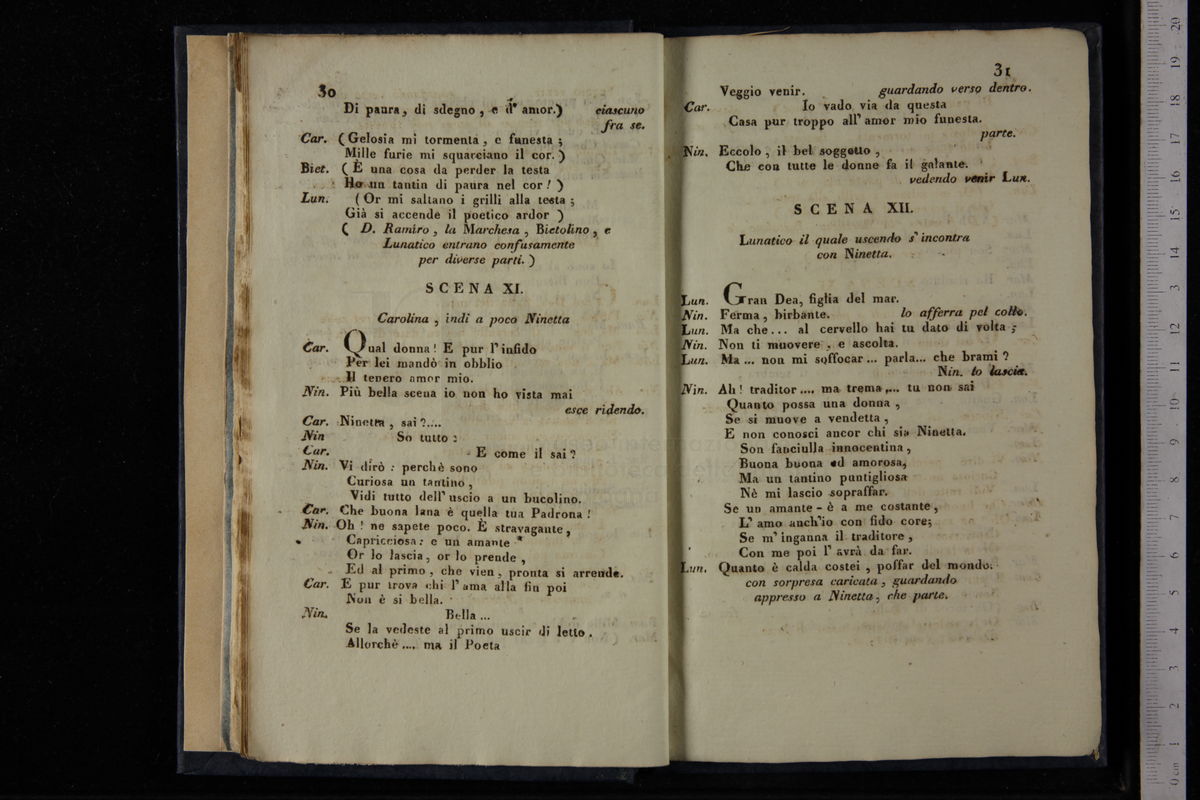 30
Di paura, di sdegno, e d' amor.) ciascuno
fra se.
Car. (Gelosia mi tormenta, e funesta ;
Mille furie mi squarciano il cor.)
Biet. (È una cosa da perder la testa
Ho un tantin di paura nel cor! )
Lun. (Or mi saltano i grilli alla testa ;
Già si accende il poetico ardor )
( D. Ramiro, la Marchesa, Bietolino, e
Lunatico entrano confusamente
per diverse parti. )
SCENA XI.
Carolina, indi a poco Ninetta
Car. Qual donna! E pur l'infido
Per lei mandò in obblio
Il tenero amor mio.
Nin. Più bella scena io non ho vista mai
esce ridendo.
Car. Ninetta, sai?....
Nin So tutto :
Car. E come il sai?
Nin. Vi dirò : perchè sono
Curiosa un tantino,
Vidi tutto dell' uscio a un bucolino.
Car. Che buona lana è quella tua Padrona!
Nin. Oh! ne sapete poco. È stravagante,
Capricciosa: e un amante
Or lo lascia, or lo prende,
Ed al primo, che vien, pronta si arrende.
Car. E pur trova chi l' ama alla fin poi
Non è si bella.
Nin. Bella ...
Se la vedeste al primo uscir di letto.
Allorchè .... ma il Poeta
31
Veggio venir. guardando verso dentro.
Car. Io vado via da questa
Casa pur troppo all' amor mio funesta.
parte.
Nin. Eccolo, il bel soggetto,
Che con tutte le donne fa il galante.
vedendo venir Lun.
SCENA XII.
Lunatico il quale uscendo s' incontra
con Ninetta.
Lun. Gran Dea, figlia del mar.
Nin. Ferma, birbante. lo afferra pel collo.
Lun. Ma che... al cervello hai tu dato di volta ;
Nin. Non ti muovere, e ascolta.
Lun. Ma ... non mi soffocar ... parla... che brami?
Nin. lo lascia.
Nin. Ah! traditor .... ma trema,... tu non sai
Quanto possa una donna,
Se si muove a vendetta,
E non conosci ancor chi sia Ninetta.
Son fanciulla innocentina,
Buona buona ed amorosa,
Ma un tantino puntigliosa
Nè mi lascio sopraffar.
Se un amante - è a me costante,
L' amo anch'io con fido core;
Se m' inganna il traditore,
Con me poi l' avrà da far.
Lun. Quanto è calda costei, poffar del mondo.
con sorpresa caricata, guardando
appresso a Ninetta, che parte.